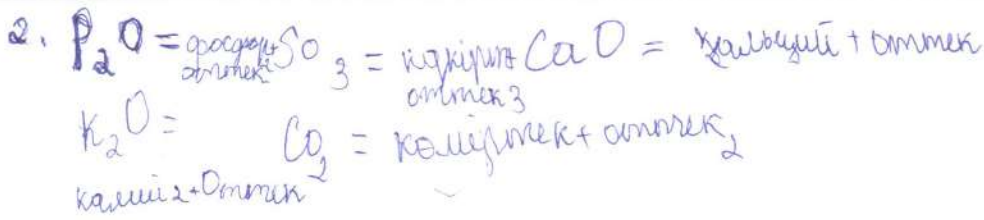 2. P₂O = фосфор+ оттек SO₃ = күкірт+ оттек 3 CaO = кальций + оттек
K₂O = калий 2 + Оттек CO₂ = көміртек + оттек₂